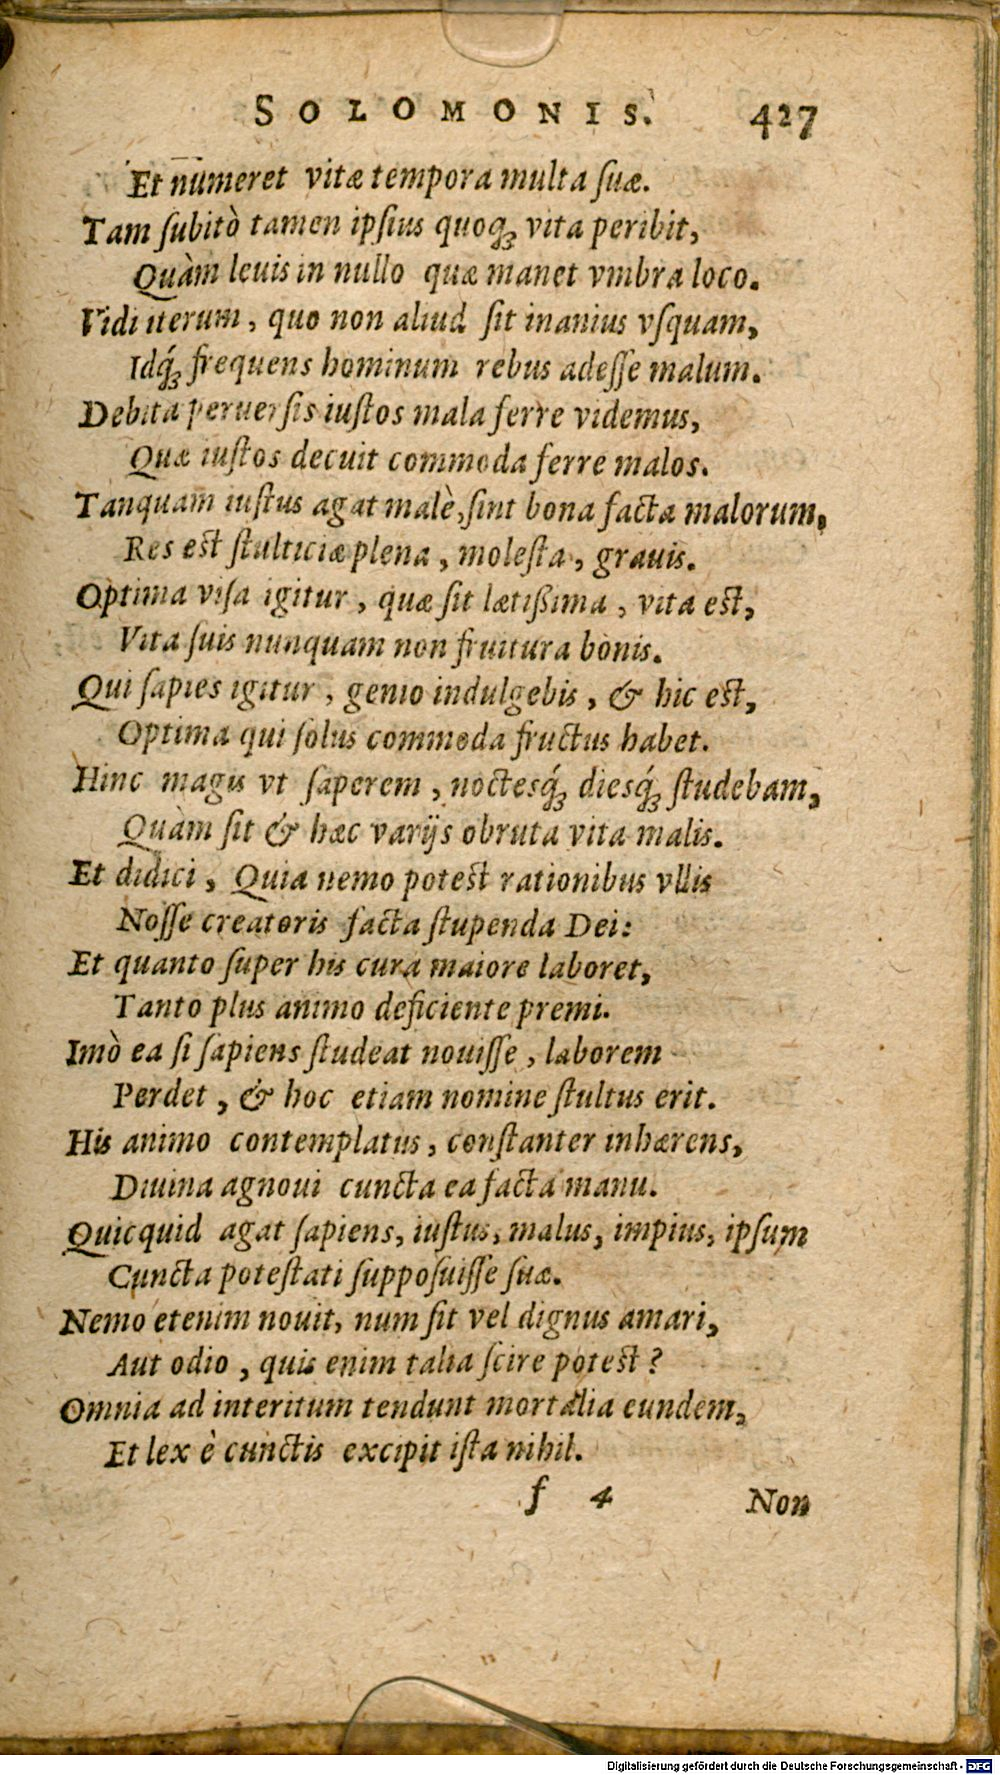 SOLOMONIS. 427
Et numeret vitæ tempora multa ſuæ.
Tam ſubitò tamen ipſius quoq́ꝫ vita peribit,
Quàm leuis in nullo quæ manet vmbra loco.
Vidi iterum, quo non aliud ſit inanius vſquam,
Idq́ꝫ frequens hominum rebus adeſſe malum.
Debita peruerſis iuſtos mala ferre videmus,
Quæ iuſtos decuit commoda ferre malos.
Tanquam iuſtus agat malè, ſint bona facta malorum,
Res eſt ſtulticiæ plena, moleſta, grauis.
Optima viſa igitur, quæ ſit lætißima, vita eſt,
Vita ſuis nunquam non fruitura bonis.
Qui ſapies igitur, genio indulgebis, & hic eſt,
Optima qui ſolus commoda fructus habet.
Hinc magis vt ſaperem, noctesq́ꝫ diesq́ꝫ ſtudebam,
Quàm ſit & hæc varijs obruta vita malis.
Et didici, Quia nemo poteſt rationibus vllis
Noſſe creatoris facta ſtupenda Dei:
Et quanto ſuper his cura maiore laboret,
Tanto plus animo deficiente premi.
Imò ea ſi ſapiens ſtudeat nouiſſe, laborem
Perdet, & hoc etiam nomine ſtultus erit.
His animo contemplatus, conſtanter inhærens,
Diuina agnoui cuncta ea facta manu.
Quicquid agat ſapiens, iuſtus, malus, impius, ipſum
Cuncta poteſtati ſuppoſuiſſe ſuæ.
Nemo etenim nouit, num ſit vel dignus amari,
Aut odio, quis enim talia ſcire poteſt?
Omnia ad interitum tendunt mortalia eundem,
Et lex è cunctis excipit iſta nihil.
f 4 Non
Digitalisierung gefördert durch die Deutsche Forschungsgemeinschaft - DFG